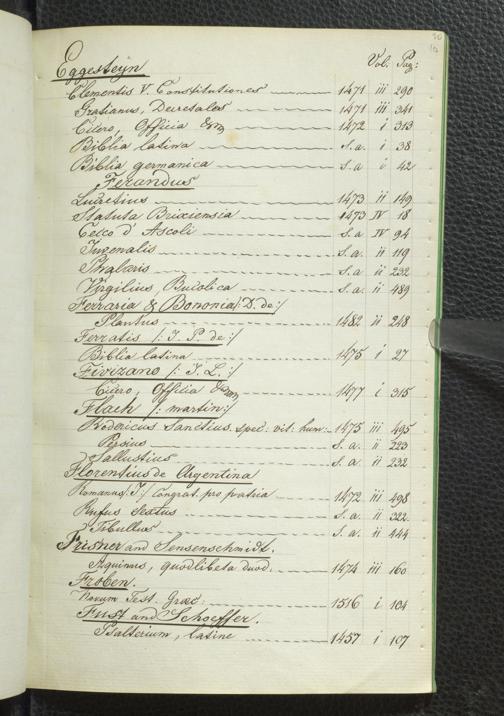 Vol: Pag:
Eggesteyn
Clementis V. Constitutiones 1471 iii 290
Gratianus, Decretales 1471 iii 341
Cicero, Officia 1472 i 313
Biblia latina S. a. i 38
Biblia germanica S. a i 42
Ferandus
Lucretius 1473 ii 149
Statuta Brixiensia 1473 IV 18
Cecco d'Ascoli S. a IV 94
Juvenalis S. a. ii 119
Phalaris S. a ii 232
Virgilius Bucolica S. a. ii 489
Ferraria & Bononia /: D. de :/
Plautus 1482 ii 248
Ferratis /: J. P. de :/
Biblia latina 1475 i 27
Fivizano /: J. L. :/
Cicero, Officia 1477 i 315
Flach /: martin :/
Rodericus Sanctius. spec: vit: hum: 1475 iii 495
Persius S. a. ii 223
Sallustius S. a. ii 232
Florentius de Argentina
Romanus /: J :/ congrat. pro patria 1472 iii 498
Rufus Sextus S. a. ii 322
Tibullus S. a. ii 444
Frisner and Sensenschmidt.
Aquinus, quodlibeta duod. 1474 iii 160
Froben.
Novum Test. Græc: 1516 i 104
Fust and Schoeffer.
Psalterium, latine 1457 i 107